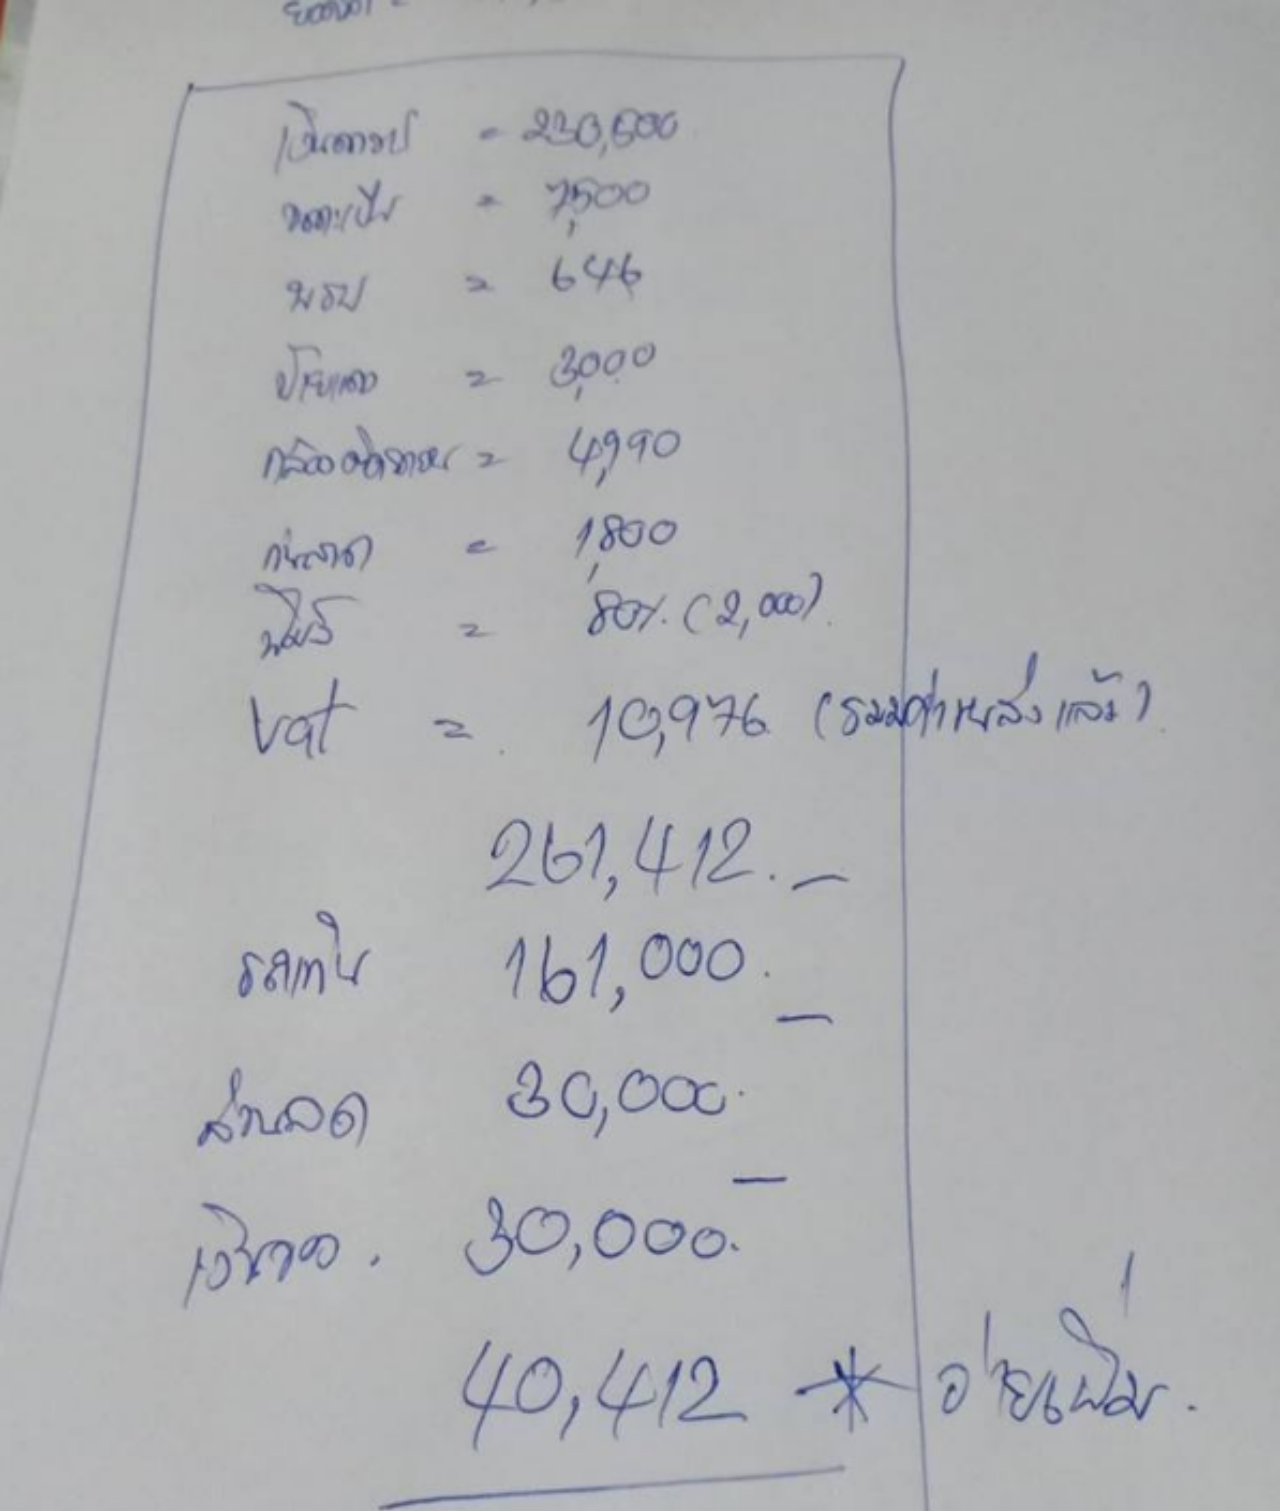 เงินดาวน์ = 230,500
จดทะเบียน = 7,500
พรบ = 646
ป้ายแดง = 3,000
กล้องติดรถยนต์ = 4,990
กันสาด = 1,800
ฟิล์ม = 80% (2,000)
Vat = 10,976 (รวมค่าขนส่งแล้ว)
261,412.-
รถเทิน 161,000.-
ส่วนลด 30,000.-
เงินจอง. 30,000.
40,412 * จ่ายเพิ่ม.